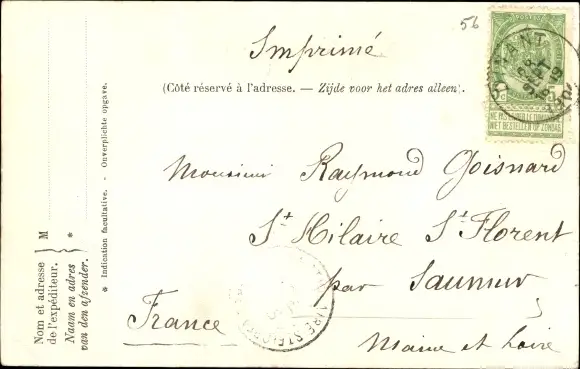 56
Imprimé
(Côté réservé à l'adresse. — Zijde voor het adres alleen).
POSTES
NE PAS LIVRER LE DIMANCHE
NIET BESTELLEN OP ZONDAG
Monsieur Raymond Goisnard
St Hilaire St Florent
par Saumur
France
Maine et Loire
M
*
Nom et adresse
de l'expéditeur.
Naam en adres
van den afzender.
* Indication facultative. - Onverplichte opgave.